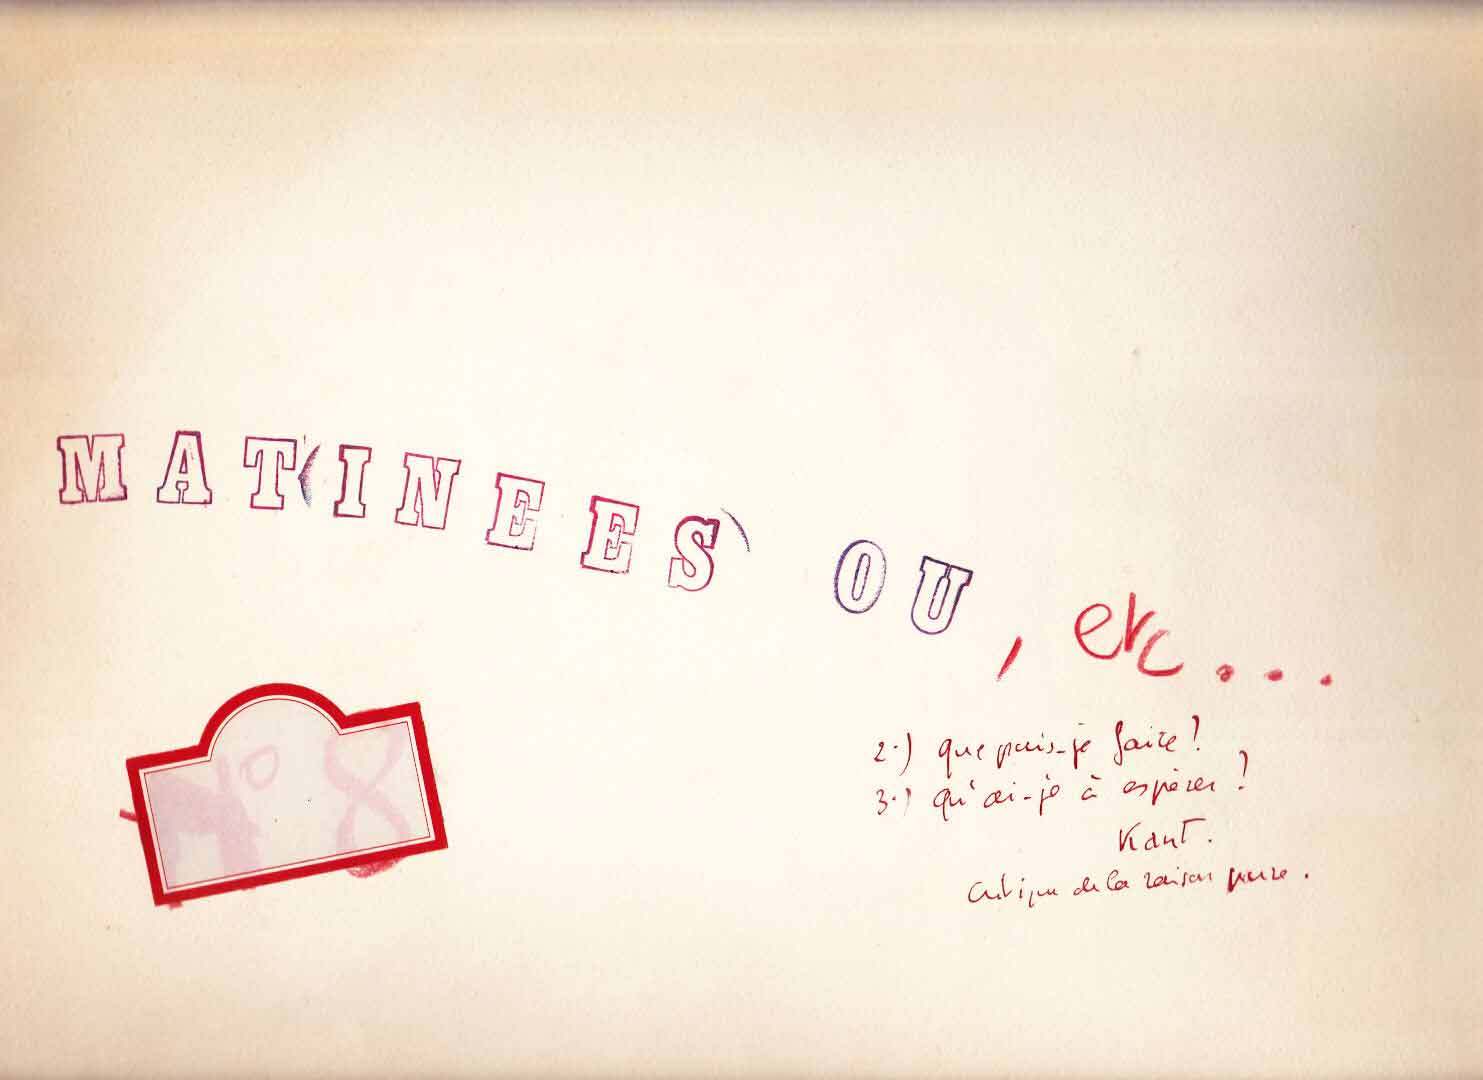 MATINEES OU, etc...
N° 8
2.) que puis-je faire?
3.) qu'ai-je à espérer?
Kant.
Critique de la raison pure.